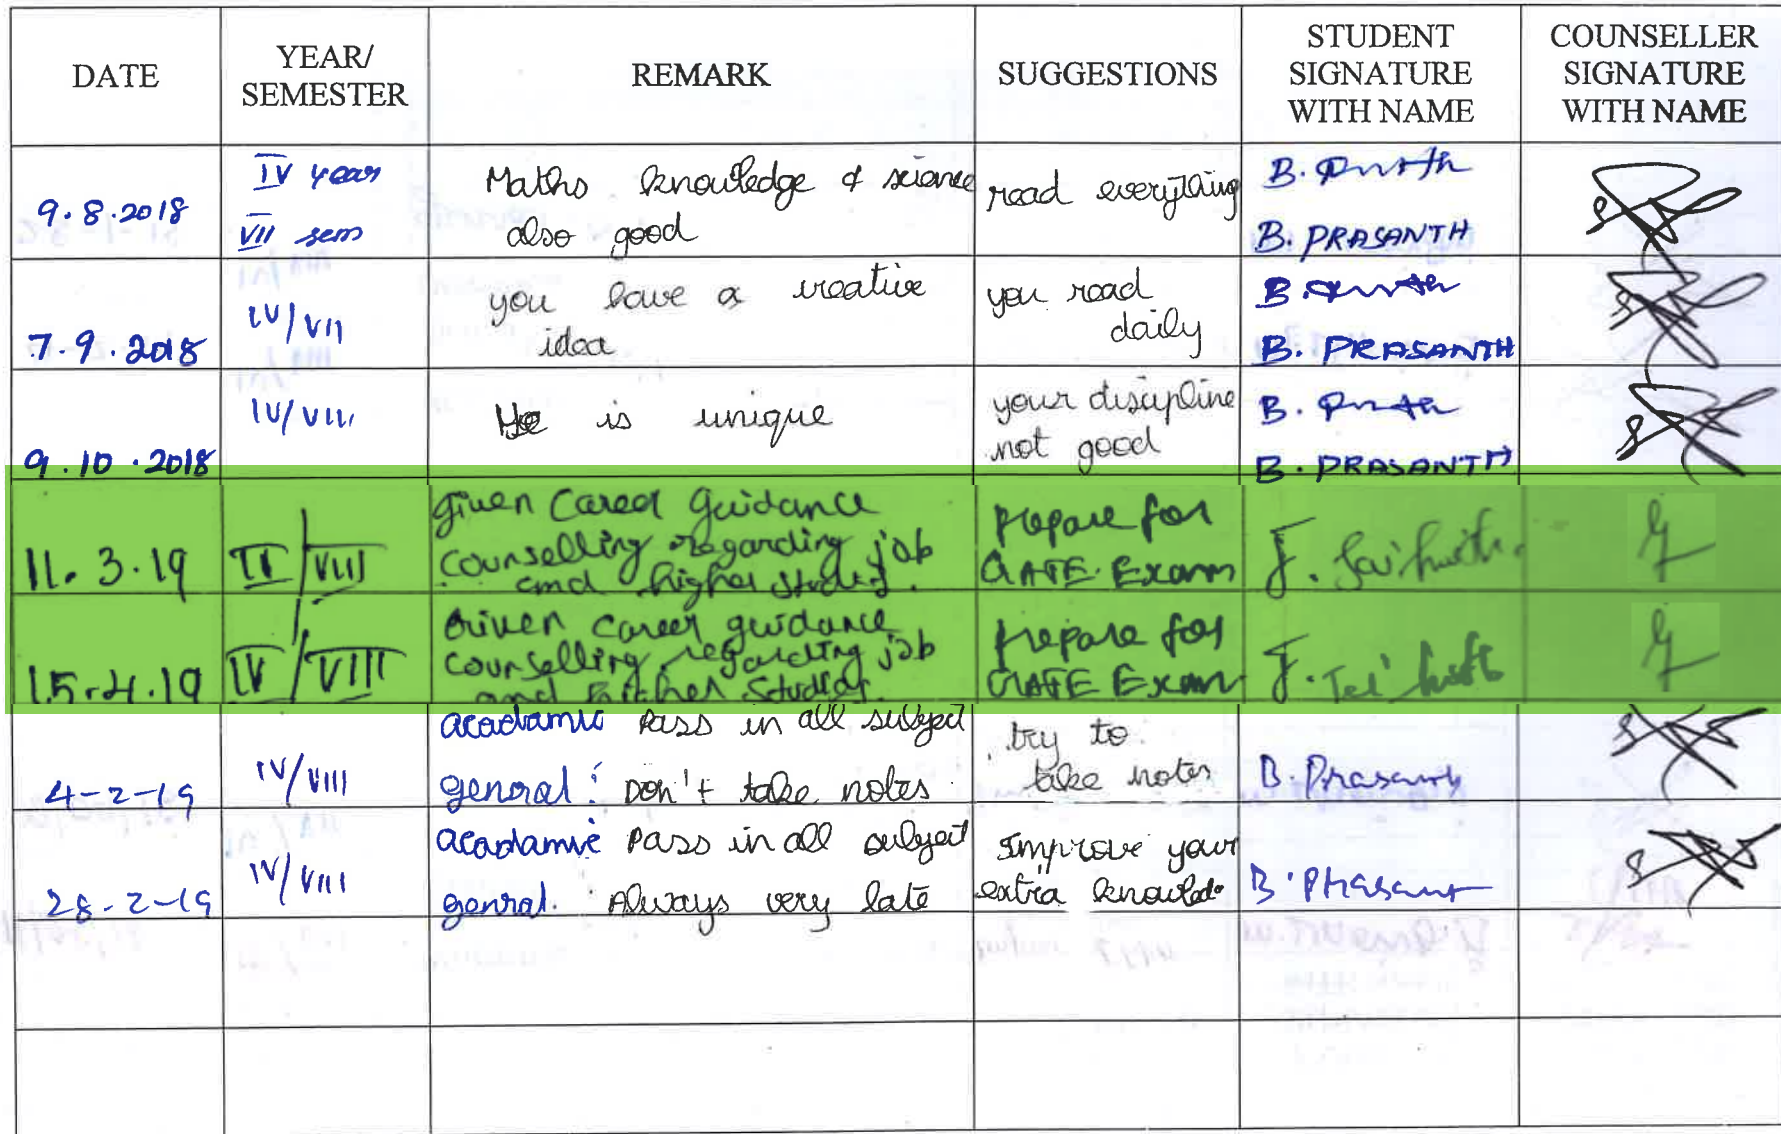 DATE YEAR/ SEMESTER REMARK SUGGESTIONS STUDENT SIGNATURE WITH NAME COUNSELLER SIGNATURE WITH NAME
9.8.2018
IV year
VII sem
Maths knowledge & science
also good
read everything
B. PRASANTH
7.9.2018
IV/VII
you have a creative
idea
you read
daily
B. PRASANTH
9.10.2018
IV/VII
He is unique
your discipline
not good
B. PRASANTH
11.3.19
VIII
given Career Guidance
counselling regarding job
and higher studies.
Prepare for
GATE Exam
J.
15.4.19
IV/VIII
Given career guidance
counselling regarding job
and higher studies.
Prepare for
GATE Exam
J.
4-2-19
IV/VIII
acadamic pass in all subject
general: Don't take notes
try to
take notes
B. Prasanth
28-2-19
IV/VIII
acadamic pass in all subject
genral. Always very late
Improve your
extra
B. Prasant